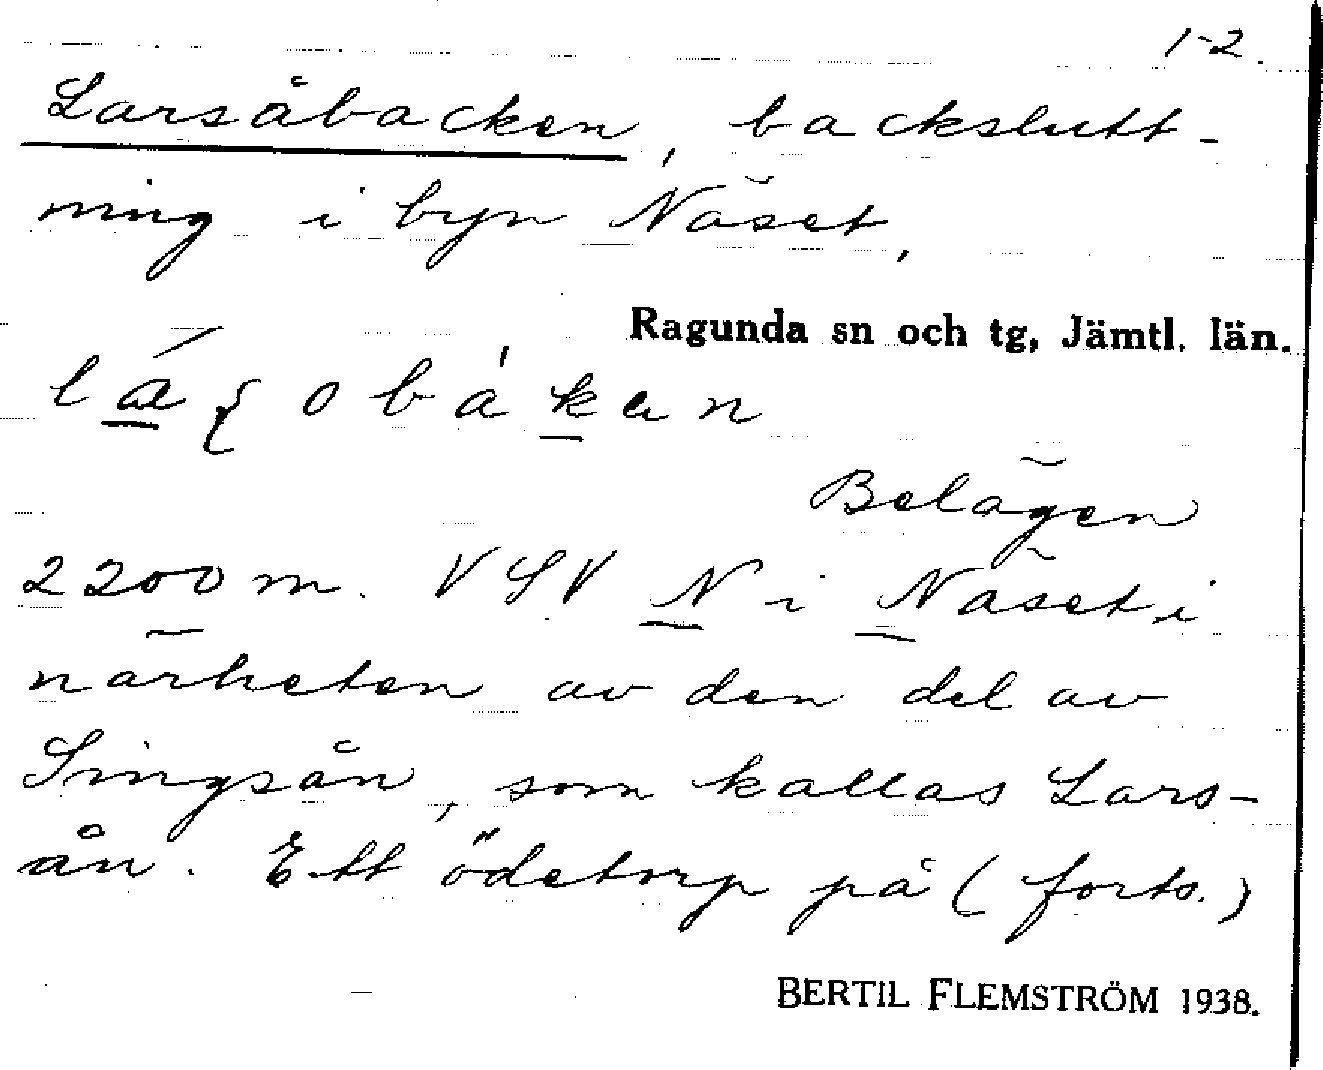 1-2.
Larsåbacken, backslutt-
ning i byn Näset.
Ragunda sn och tg, Jämtl. län.
Belägen
2200 m. VSV N i Näset i
närheten av den del av
Singsån, som kallas Lars-
ån. Ett ödetorp på (forts.)
BERTIL FLEMSTRÖM 1938.